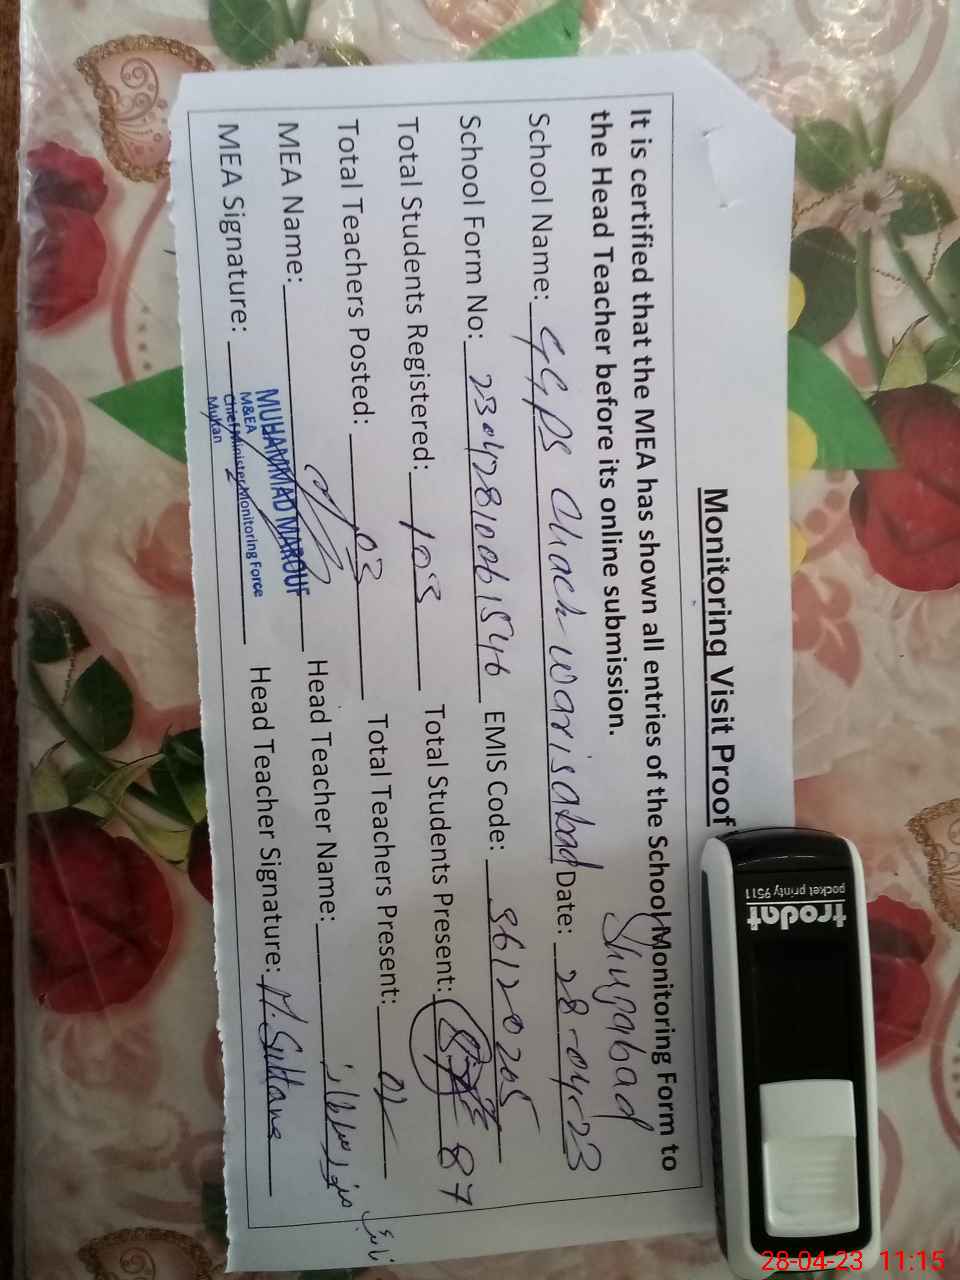 Monitoring Visit Proof
It is certified that the MEA has shown all entries of the School Monitoring Form to
the Head Teacher before its online submission.
Shujabad
School Name: GGPS Chach warisabad Date: 28-04-23
School Form No: 23042810061546 EMIS Code: 36120205
Total Students Registered: 103 Total Students Present: 87
Total Teachers Posted: 03 Total Teachers Present: 02
MEA Name: MUHAMMAD MAROUF Head Teacher Name:
M&EA
Chief Minister Monitoring Force
Multan
MEA Signature: Head Teacher Signature: M. Sultana
trodat
pocket printy 9511
28-04-23 11:15